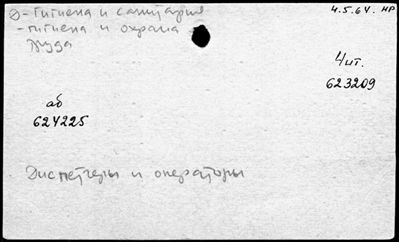 Ә - гигиена и санитария
4.5.64. нр
- гигиена и охрана
труда
Чит.
623209
аб
624225
Диспетчеры и операторы